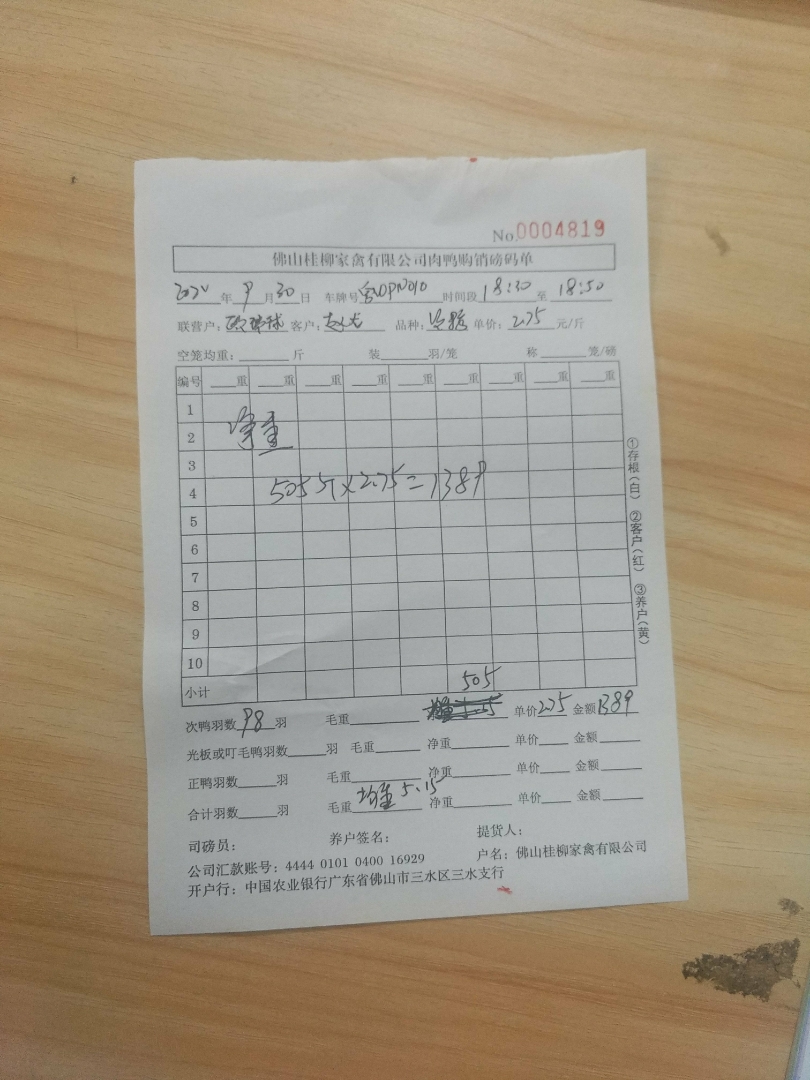 No.0004819
佛山桂柳家禽有限公司肉鸭购销磅码单
年 9 月 30 日 车牌号 时间段 18:30 至 18:50
联营户： 客户： 品种： 单价：2.75 元/斤
空笼均重：____斤 装____羽/笼 称____笼/磅
编号 ___重 ___重 ___重 ___重 ___重 ___重 ___重 ___重 ___重
1
2 净重
3
4 505斤×2.75=1389
5
6
7
8
9
10
小计 505
次鸭羽数 98 羽 毛重____ 单价 2.75 金额 1389
光板或叮毛鸭羽数____羽 毛重____ 净重____ 单价____ 金额____
正鸭羽数____羽 毛重____ 净重____ 单价____ 金额____
合计羽数____羽 毛重 均重 5.15 净重____ 单价____ 金额____
司磅员： 养户签名： 提货人：
公司汇款账号：4444 0101 0400 16929 户名：佛山桂柳家禽有限公司
开户行：中国农业银行广东省佛山市三水区三水支行
①存根(白) ②客户(红) ③养户(黄)